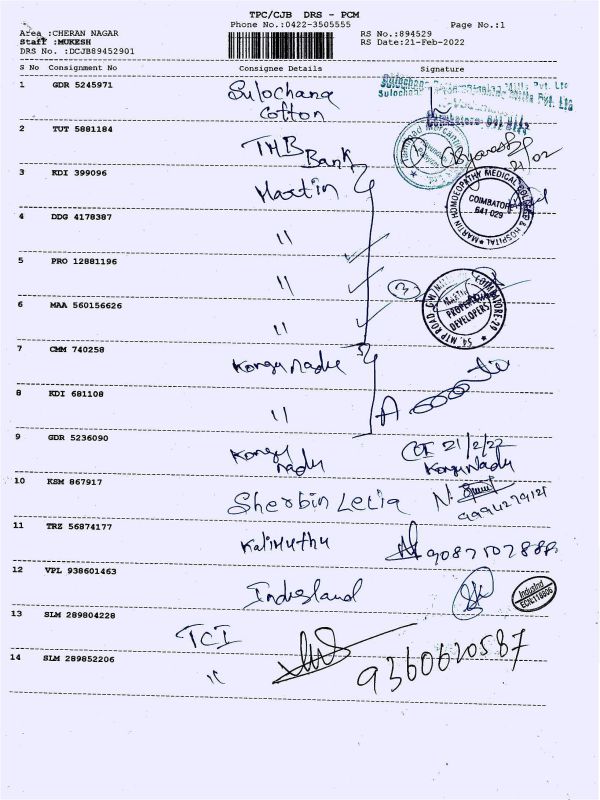 TPC/CJB DRS - PCM
Phone No.:0422-3505555
Page No.:1
Area :CHERAN NAGAR
RS No.:894529
Staff :MUKESH
RS Date:21-Feb-2022
DRS No. :DCJB89452901
S No Consignment No Consignee Details Signature
1 GDR 5245971 Sulochana
Cotton
Coimbatore
2 TUT 5881184 TMB Bank
21/02
3 KDI 399096 Martin
MARTIN HOMOEOPATHY MEDICAL COLLEGE & HOSPITAL
COIMBATORE
641 029
4 DDG 4178387 "
5 PRO 12881196 "
6 MAA 560156626 "
54, MTP ROAD, G.N. COIMBATORE-29
PROPERTY
DEVELOPERS
7 CMM 740258 Kongu Nadu
8 KDI 681108 "
9 GDR 5236090 Kongu
Nadu
21/2/22
Kongu Nadu
10 KSM 867917 Sherbin Letia
11 TRZ 56874177 Kalimuthu
12 VPL 938601463 Indusland
IndusInd
13 SLM 289804228 TCI
14 SLM 289852206 "
9360620587